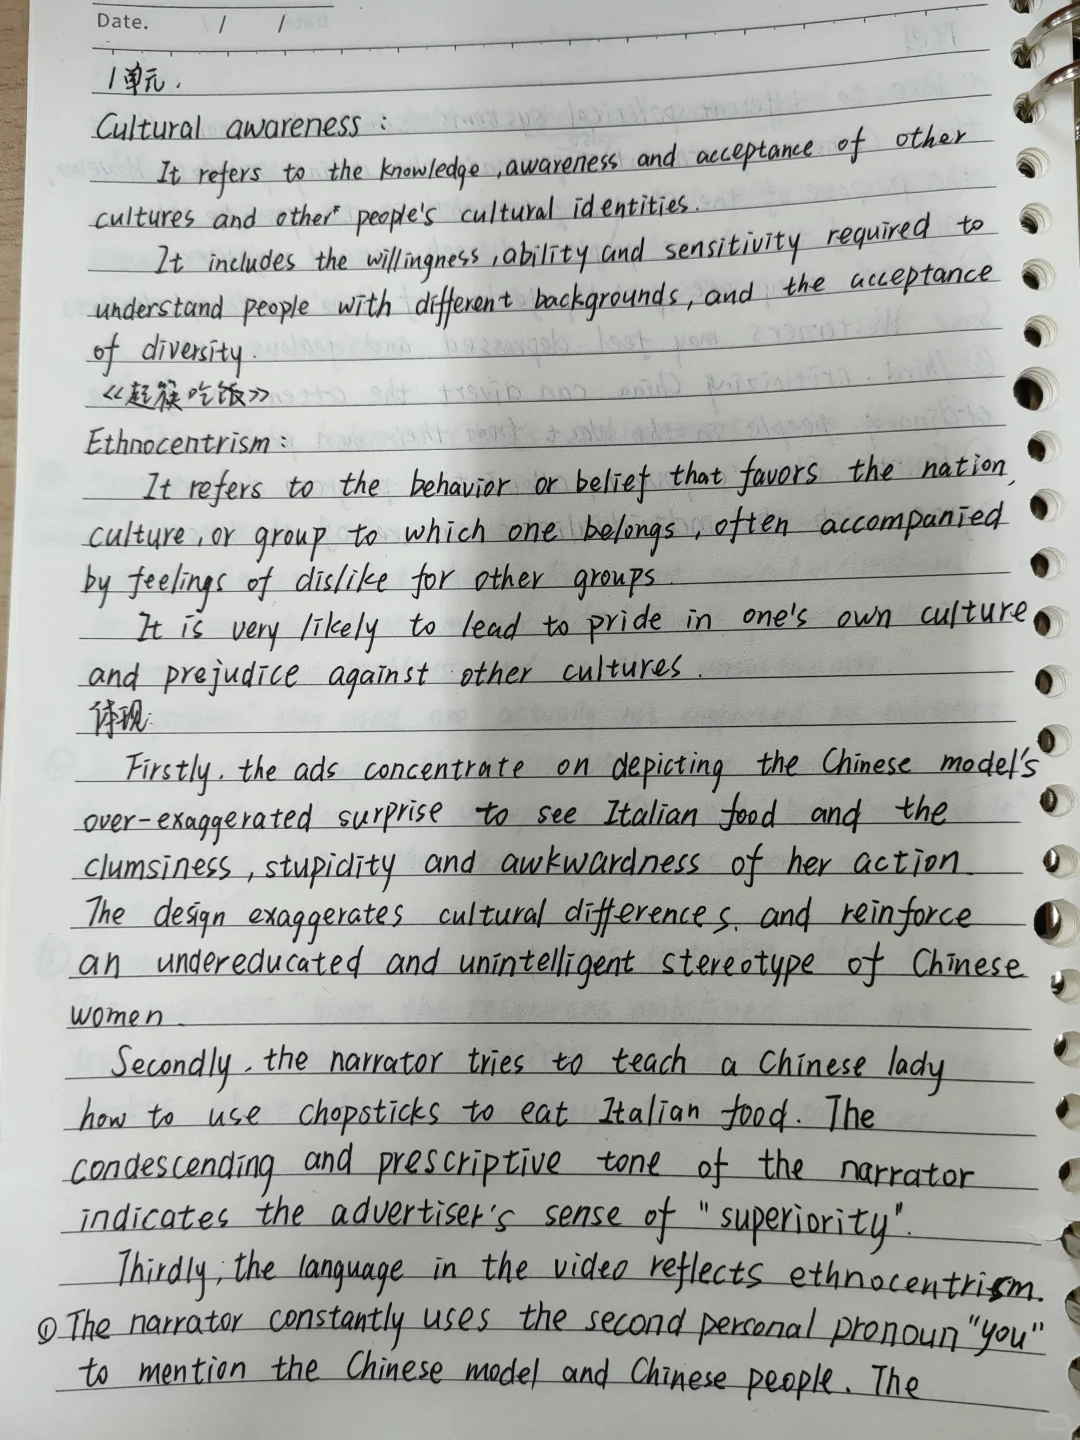 Date. / /
1单元.
Cultural awareness:
It refers to the knowledge, awareness and acceptance of other
cultures and other people's cultural identities.
It includes the willingness, ability and sensitivity required to
understand people with different backgrounds, and the acceptance
of diversity.
《起筷吃饭》
Ethnocentrism:
It refers to the behavior or belief that favors the nation,
culture, or group to which one belongs, often accompanied
by feelings of dislike for other groups.
It is very likely to lead to pride in one's own culture
and prejudice against other cultures.
体现:
Firstly, the ads concentrate on depicting the Chinese model's
over-exaggerated surprise to see Italian food and the
clumsiness, stupidity and awkwardness of her action.
The design exaggerates cultural differences, and reinforce
an undereducated and unintelligent stereotype of Chinese
women.
Secondly, the narrator tries to teach a Chinese lady
how to use chopsticks to eat Italian food. The
condescending and prescriptive tone of the narrator
indicates the advertiser's sense of "superiority".
Thirdly, the language in the video reflects ethnocentrism.
① The narrator constantly uses the second personal pronoun "you"
to mention the Chinese model and Chinese people. The